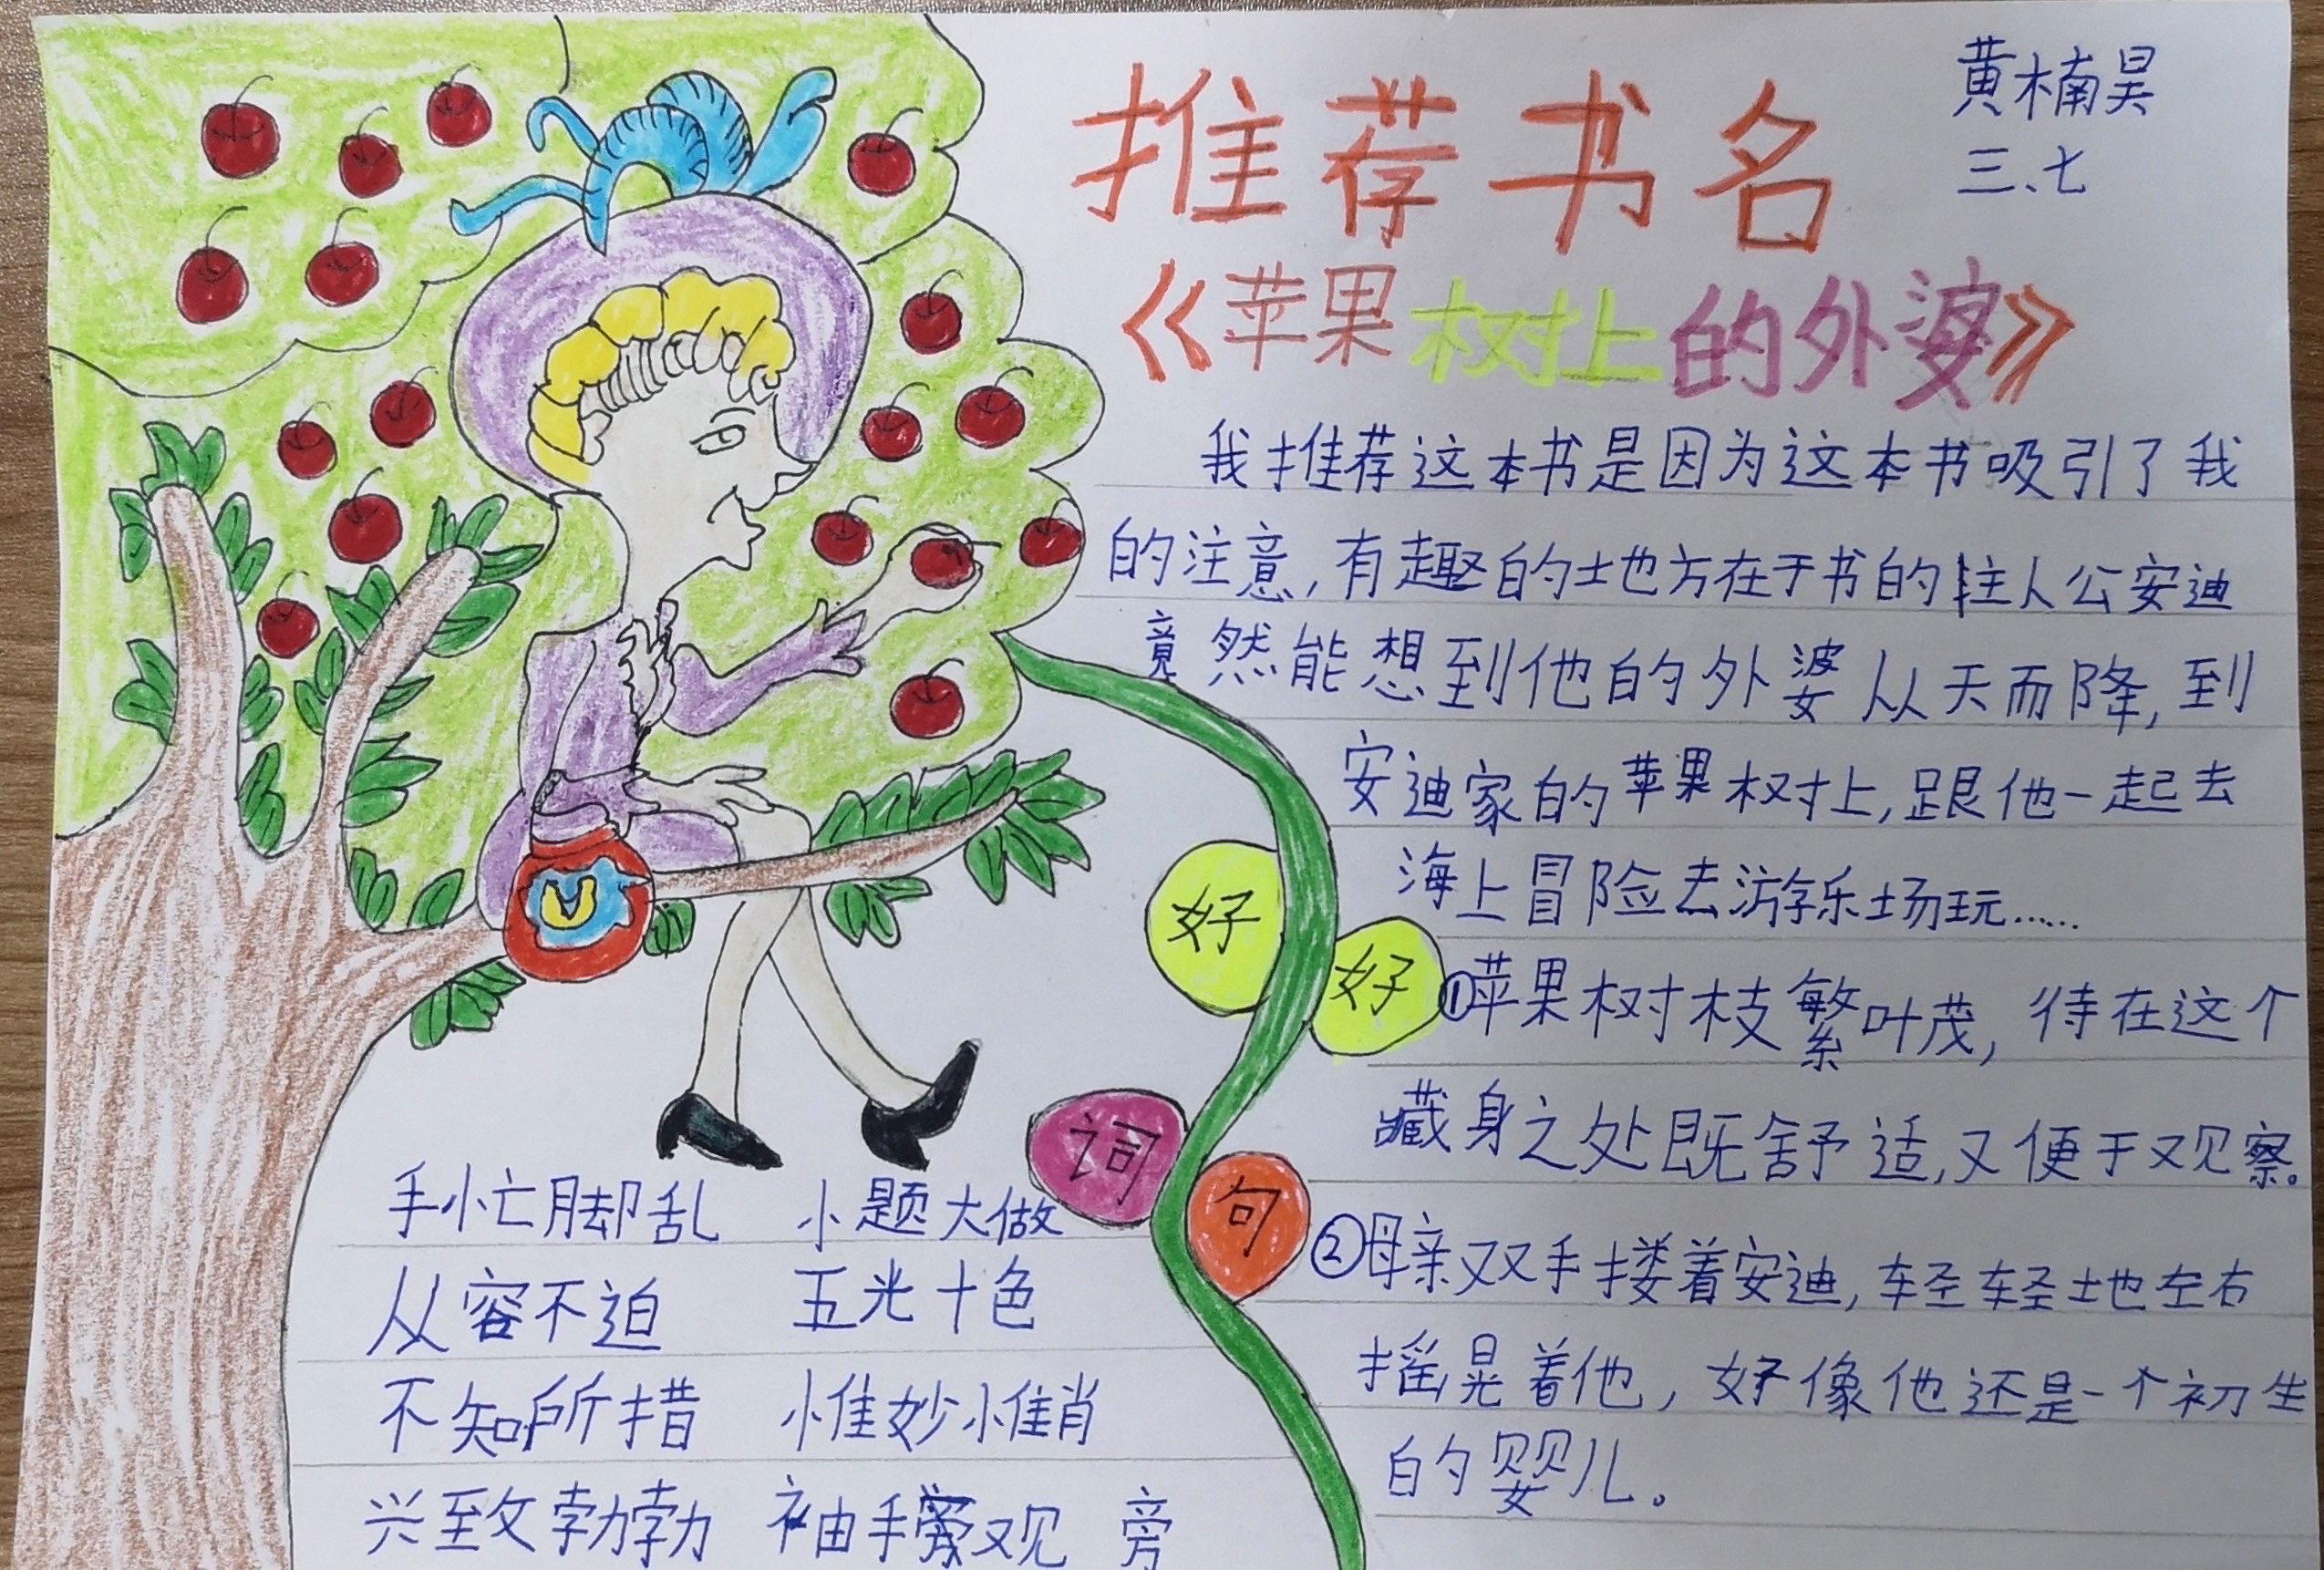 推荐书名
黄楠昊
三、七
《苹果树上的外婆》
我推荐这本书是因为这本书吸引了我
的注意,有趣的地方在于书的主人公安迪
竟然能想到他的外婆从天而降,到
安迪家的苹果树上,跟他一起去
海上冒险去游乐场玩……
好词
好句
①苹果树枝繁叶茂,待在这个
藏身之处既舒适,又便于观察。
②母亲双手搂着安迪,轻轻地左右
摇晃着他,好像他还是一个初生
的婴儿。
手忙脚乱 小题大做
从容不迫 五光十色
不知所措 惟妙惟肖
兴致勃勃 袖手观 旁